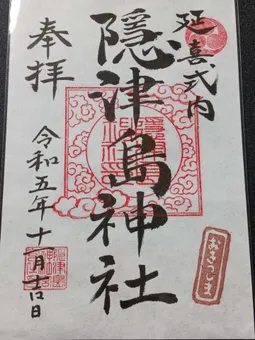 延喜式内
隠津島神社
奉拝
令和五年十一月吉日
おきつしま